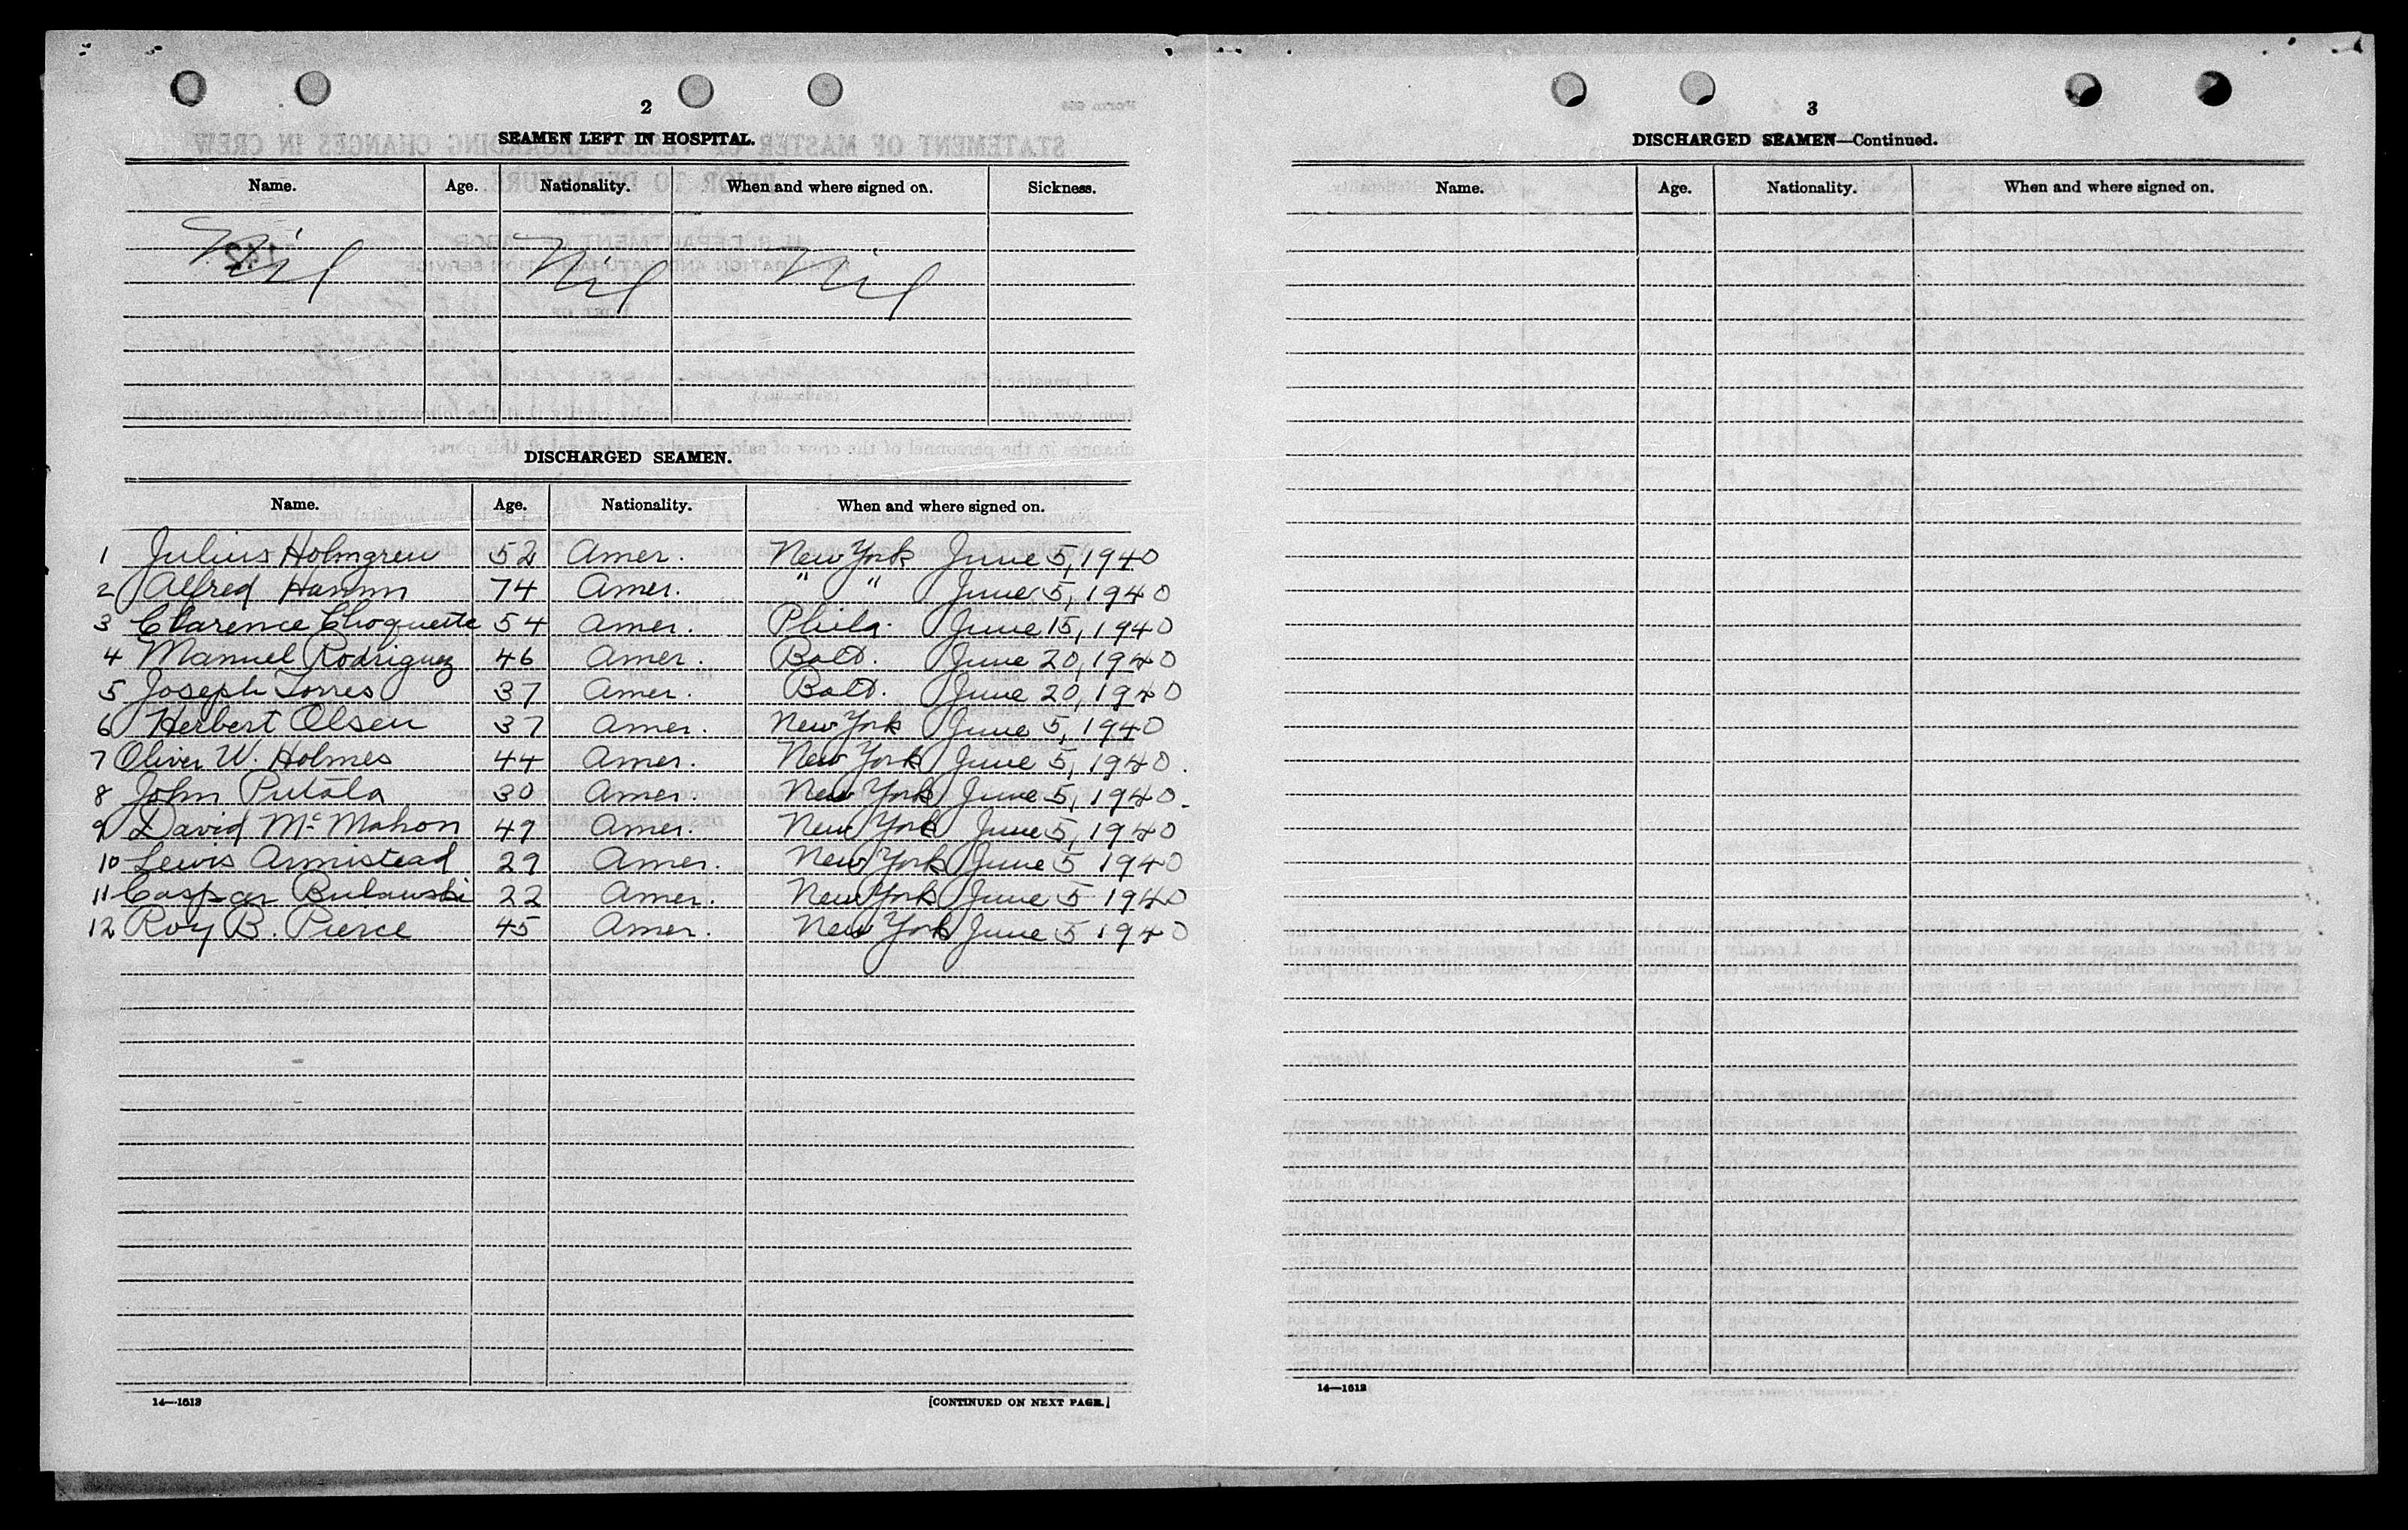 2
SEAMEN LEFT IN HOSPITAL.
Name. Age. Nationality. When and where signed on. Sickness.
Nil Nil Nil
DISCHARGED SEAMEN.
Name. Age. Nationality. When and where signed on.
1 Julius Holmgren 52 Amer. New York June 5, 1940
2 Alfred Hamm 74 Amer. " " June 5, 1940
3 Clarence Choquette 54 Amer. Phila. June 15, 1940
4 Manuel Rodriguez 46 Amer. Balt. June 20, 1940
5 Joseph Torres 37 Amer. Balt. June 20, 1940
6 Herbert Olsen 37 Amer. New York June 5, 1940
7 Oliver W. Holmes 44 Amer. New York June 5, 1940.
8 John Putala 30 Amer. New York June 5, 1940.
9 David McMahon 49 Amer. New York June 5, 1940
10 Lewis Armistead 29 Amer. New York June 5 1940
11 Casper Bulawski 22 Amer. New York June 5 1940
12 Roy B. Pierce 45 Amer. New York June 5 1940
14—1613
[CONTINUED ON NEXT PAGE.]
3
DISCHARGED SEAMEN—Continued.
Name. Age. Nationality. When and where signed on.
14—1613